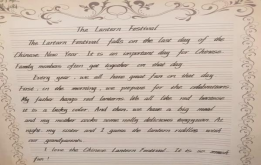 The Lantern Festival
The Lantern Festival falls on the last day of the
Chinese New Year. It is an important day for Chinese.
Family members often get together on that day.
Every year, we all have great fun on that day
First, in the morning, we prepare for the celebrations.
My father hangs red lanterns We all like red because
it is a lucky color. And then we have a big meal
and my mother cooks some really delicious
night my sister and I guess the lantern riddles with
our grandparents.
I love the Chinese Lantern Festival. It is so much
fun!